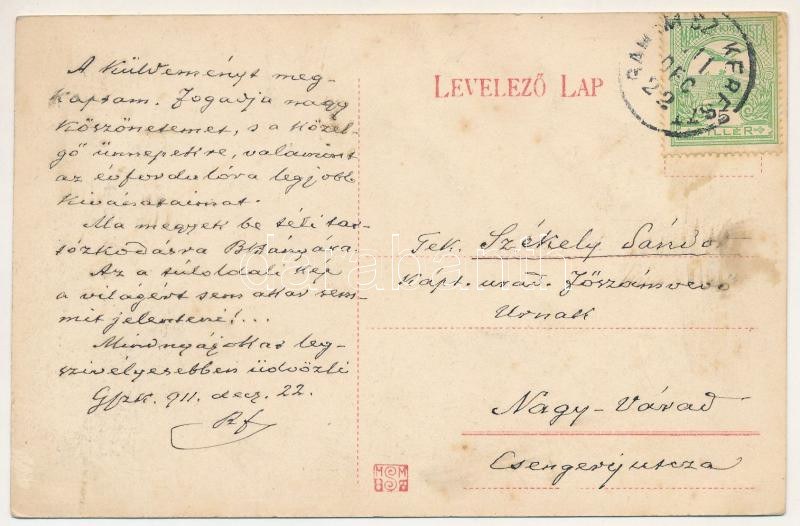 A küldeményt meg-
kaptam. Fogadja nagy
köszönetemet, s a közel-
gő ünnepekre, valamint
az évfordulóra legjobb
kivánataimat.
Ma megyek be téli tar-
tózkodásra Bbányára.
Az a túloldali kép
a világért sem akar sem-
mit jelenteni!...
Mindnyájokat leg-
szivélyesebben üdvözli
Gfzk. 911. decz. 22.
LEVELEZŐ LAP
911 DEC 22
Tek. Székely Sándor
Kápt. urad. főszámvevő
Urnak
Nagy-Várad
Csengerijutcza
darabanth